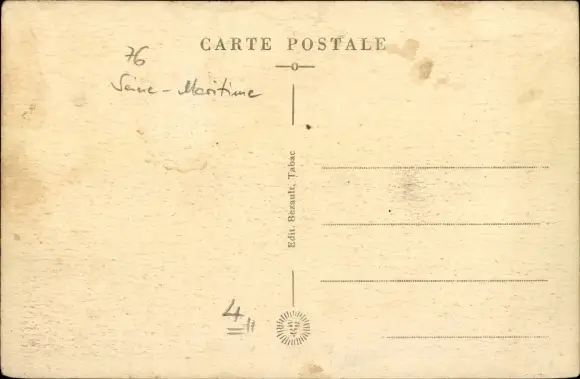 CARTE POSTALE
76
Seine-Maritime
Edit. Bezault, Tabac
4